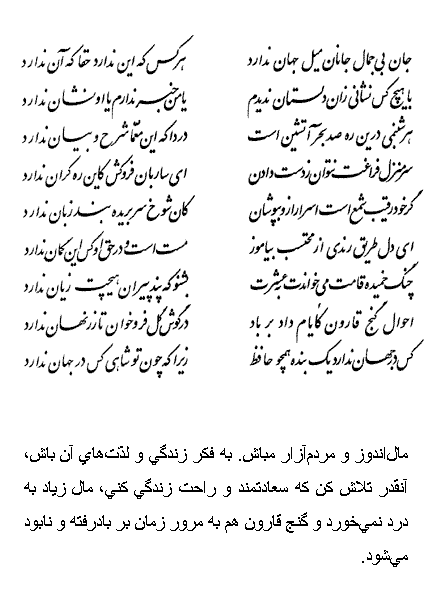 جان بی جمال جانان میل جهان ندارد هرکس که این ندارد حقا که آن ندارد
با هیچ کس نشانی زان دلستان ندیدم یا من خبر ندارم یا او نشان ندارد
هر شبنمی درین ره صد بحر آتشین است دردا که این معما شرح و بیان ندارد
سر منزل فراغت نتوان ز دست دادن ای ساربان فروکش کاین ره کران ندارد
گر خود رقیب شمع است اسرار ازو بپوشان کان شوخ سر بریده بند زبان ندارد
ای دل طریق رندی از محتسب بیاموز مست است و در حق او کس این گمان ندارد
چنگ خمیده قامت می‌خواندت به عشرت بشنو که پند پیران هیچت زیان ندارد
احوال گنج قارون کایام داد بر باد در گوش گل فروخوان تا زر نهان ندارد
کس در جهان ندارد یک بنده همچو حافظ زیرا که چون تو شاهی کس در جهان ندارد
مال‌اندوز و مردم‌آزار مباش. به فکر زندگي و لذّت‌هاي آن باش،
آنقدر تلاش کن که سعادتمند و راحت زندگي کني، مال زياد به
درد نمي‌خورد و گنج قارون هم به مرور زمان بر بادرفته و نابود
مي‌شود.